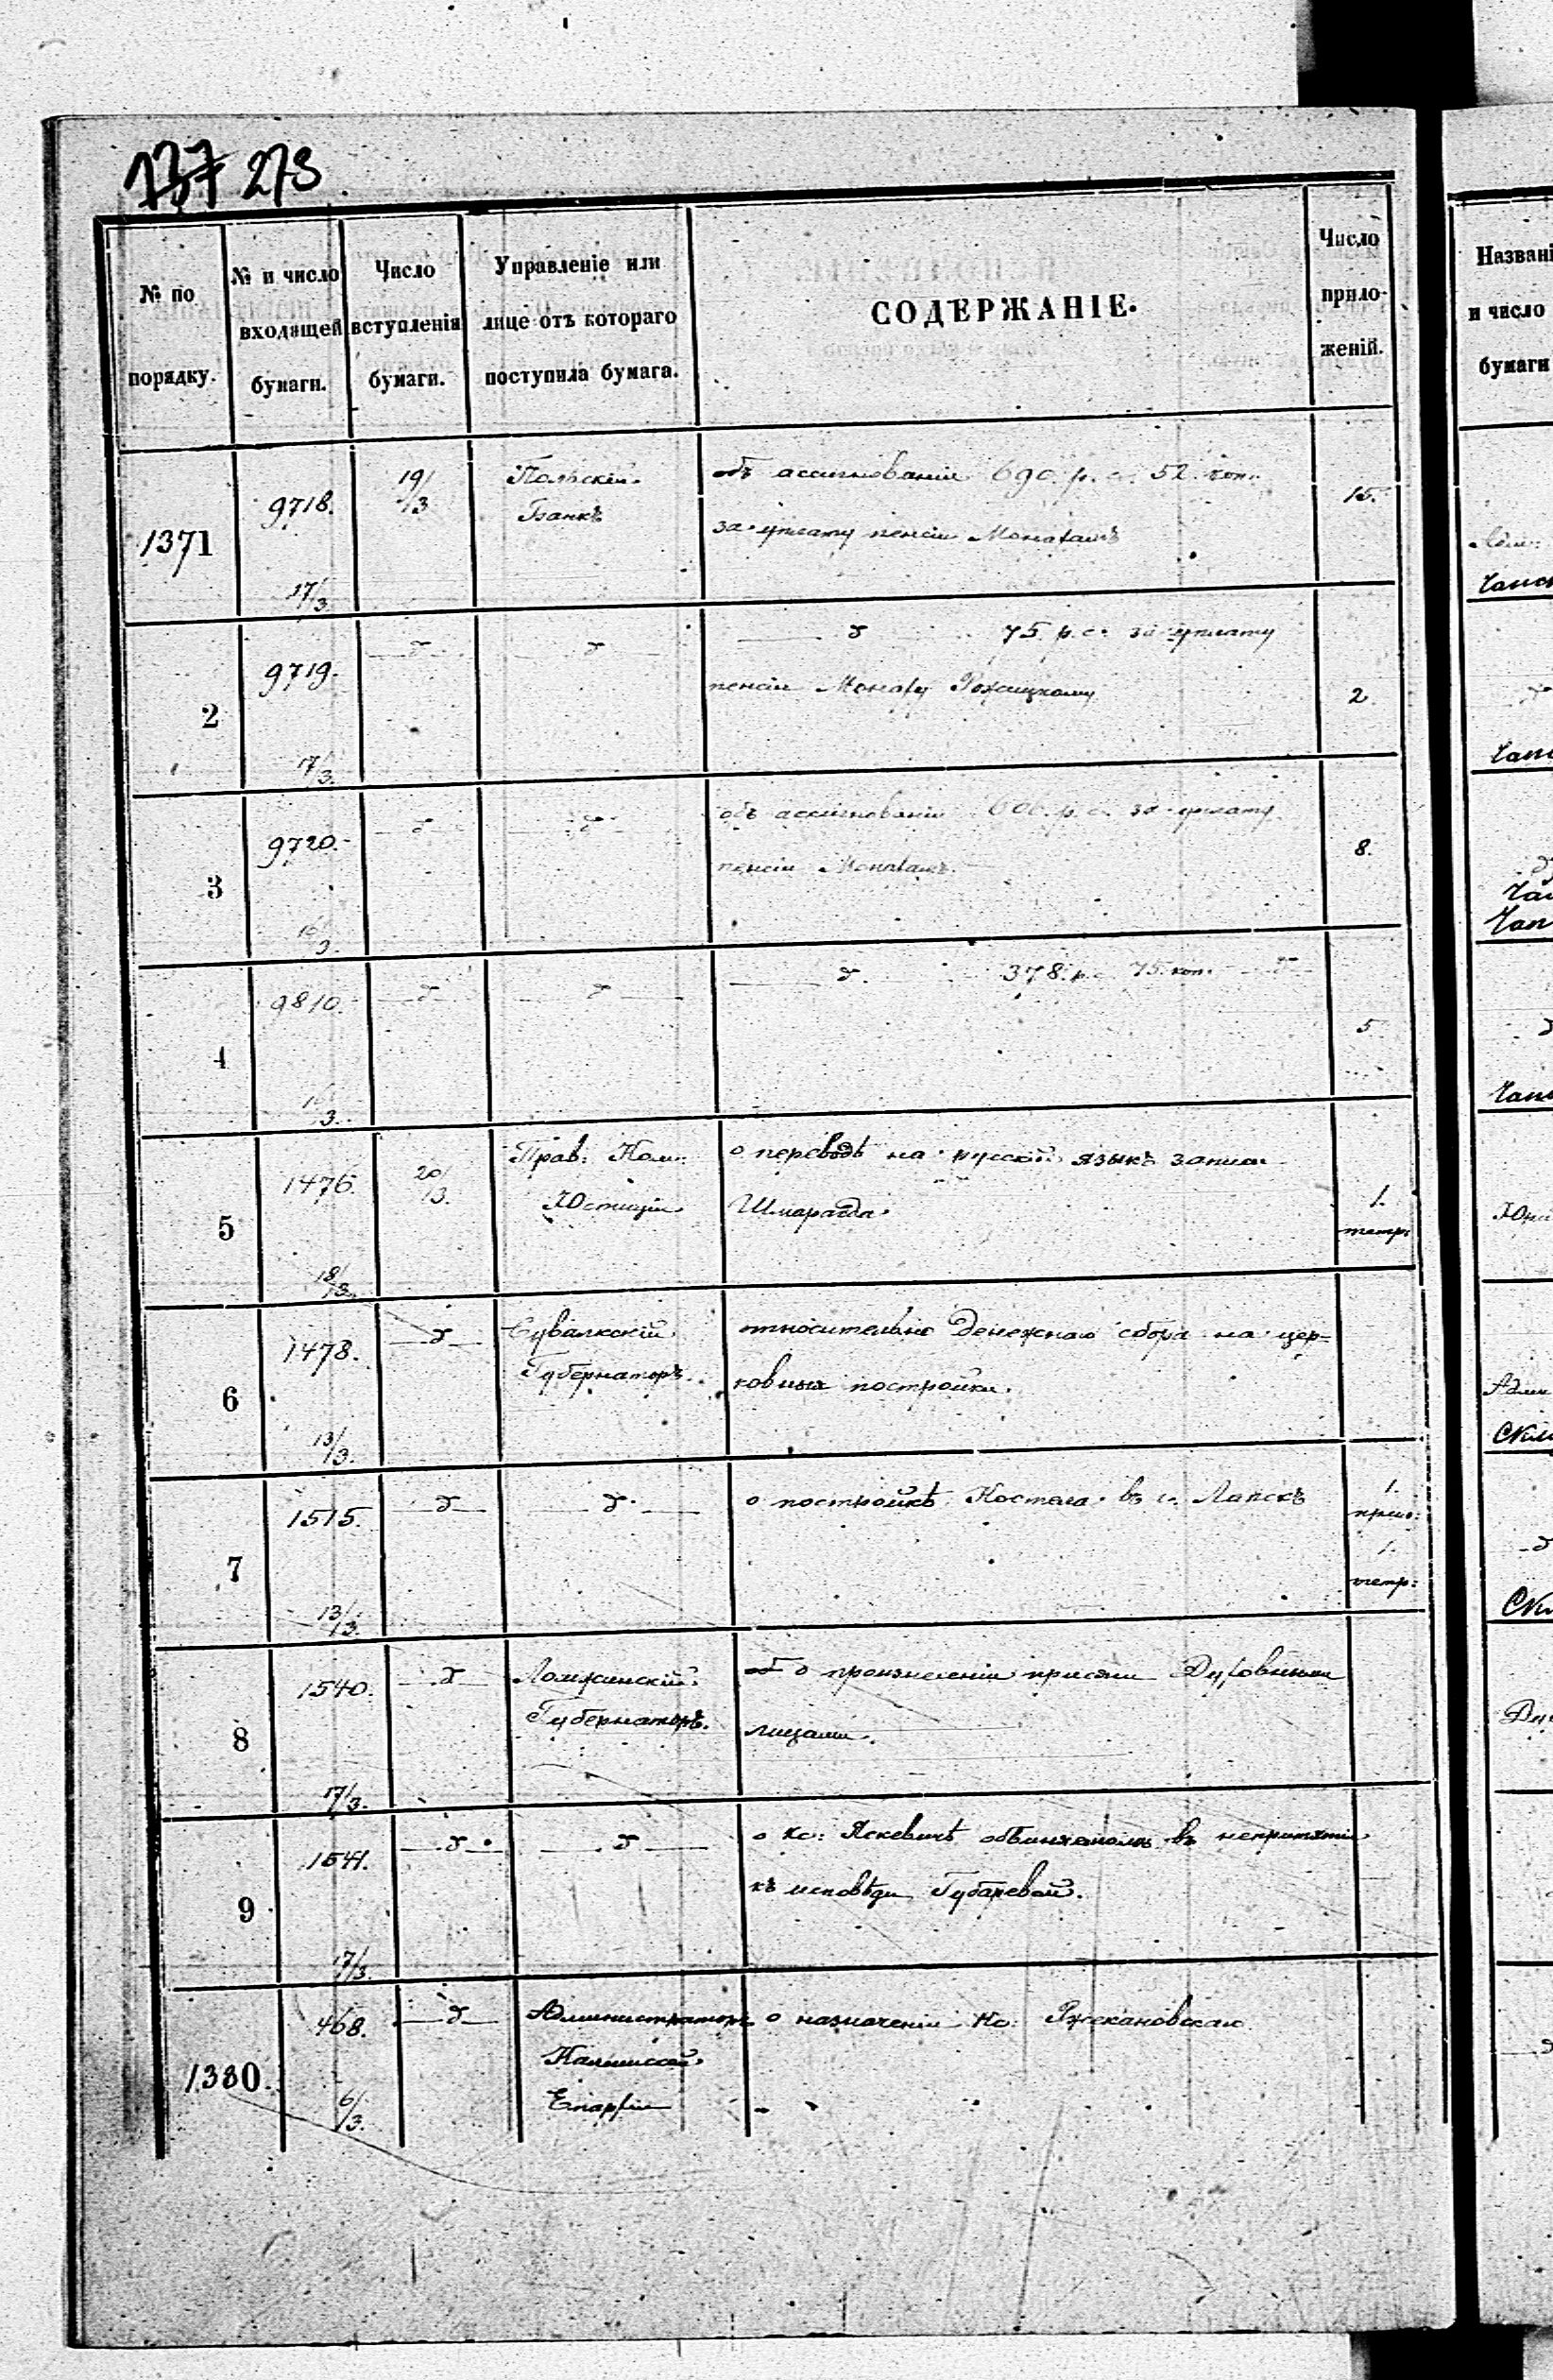 137 273
№ по порядку.
№ и число входящей бумаги.
Число вступленія бумаги.
Управленіе или лице отъ котораго поступила бумага.
СОДЕРЖАНІЕ.
Число приложеній.
1371
9718.
17/3.
19/3
Польскій
Банкъ
объ ассигнованіи 690. р. с. 52. коп.
за уплату пенсіи Монахамъ
15.
2
9719.
17/3.
д
д
д 75. р. с. за уплату
пенсіи Монаху
2
3
9720.
16/3.
д
д
объ ассигнованіи 606. р. с. за уплату
пенсіи Монахамъ.
8.
4
9810.
3.
д
д
д. 378. р. с. 75. коп. д
5
5
1476.
18/3.
20/3.
Прав: Ком:
Юстиціи
о переводѣ на русскій языкъ записи
Шмарагда.
1.
тетр:
6
1478.
13/3.
д
Сувалкскій
Губернаторъ.
относительно денежнаго сбора на цер=
ковныя постройки.
7
1515.
13/3.
д
д.
о постройкѣ Костела въ с. Лапскъ
1.
прило:
1.
тетр:
8
1540.
17/3.
д
Ломжинскій
Губернаторъ.
о произнесеніи присяги Духовными
лицами.
9
1541.
17/3.
д
д
о Кс: Яскевичѣ обвиняемомъ въ непринятіи
къ исповѣди Губаревой.
1380.
468.
6/3.
д
Администраторъ
Калишской
Епархіи
о назначеніи Кс: Ржехановскаго.
Названі
и число
бумаги